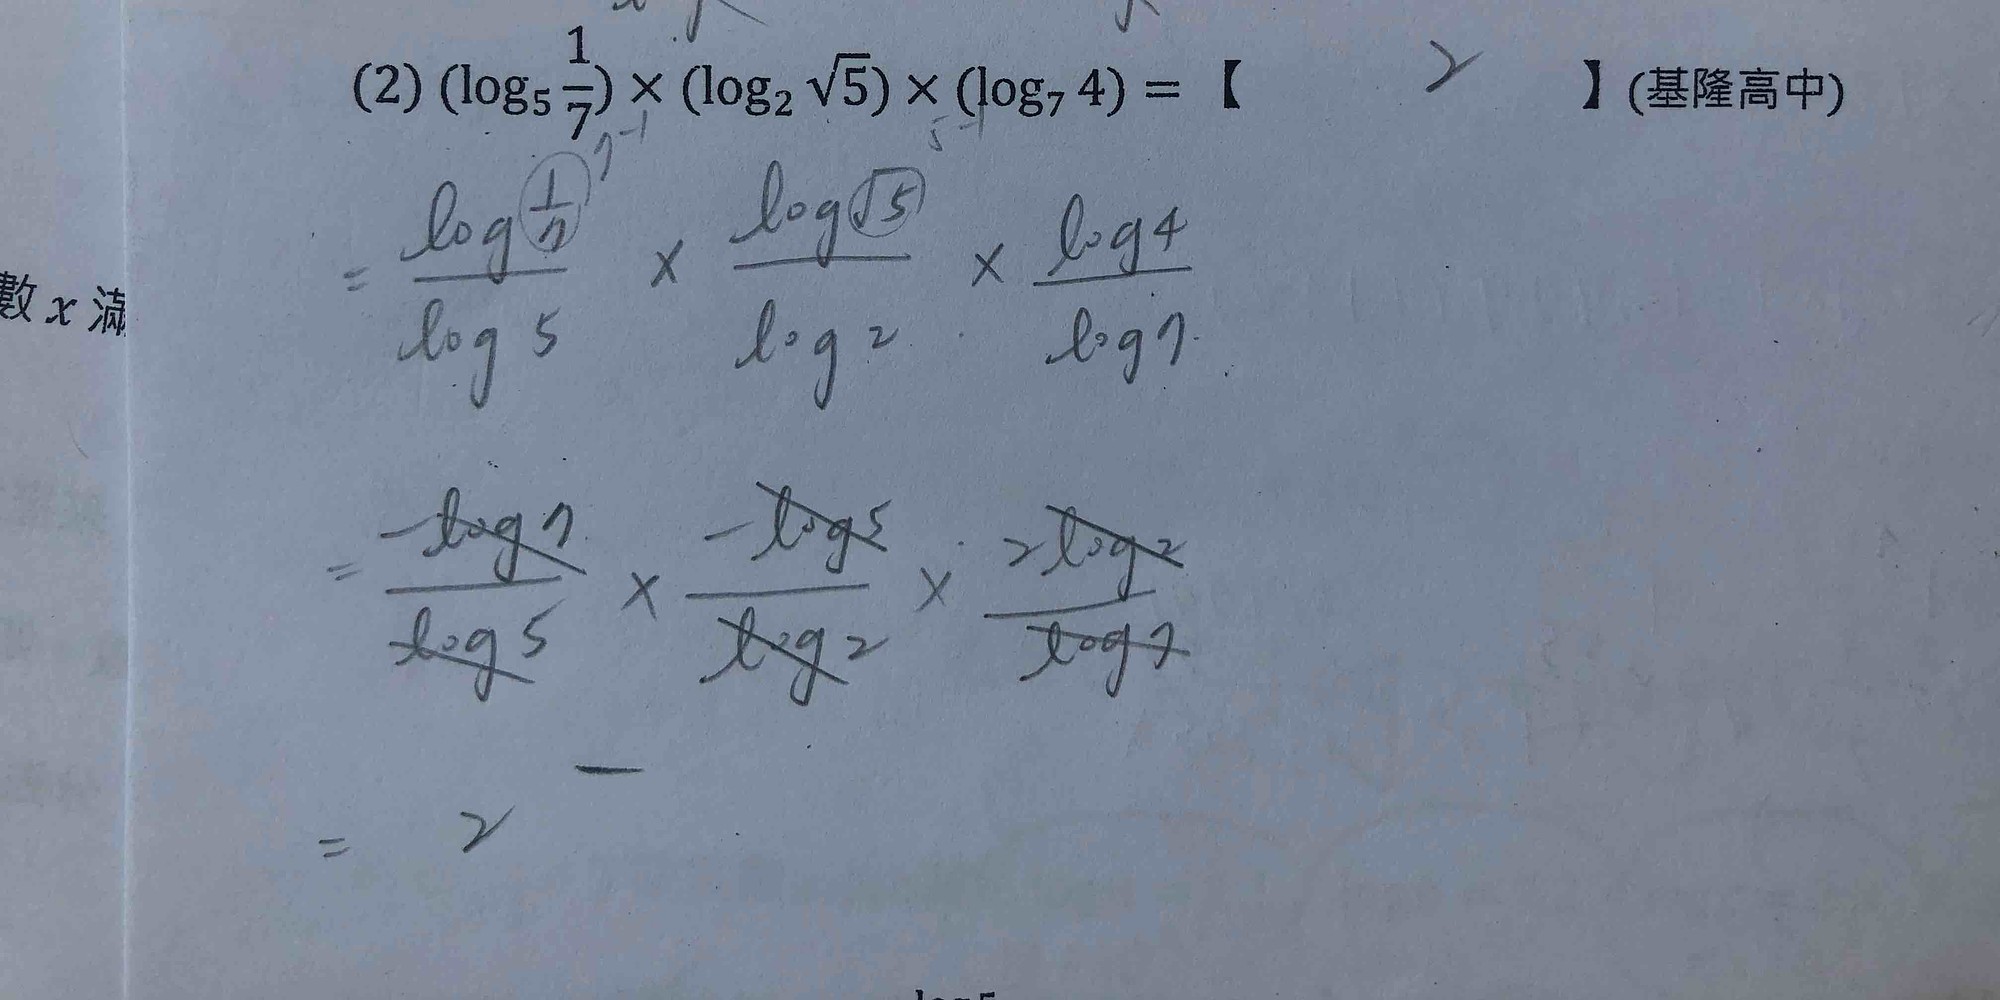 (2) (log₅ 1/7) × (log₂ √5) × (log₇ 4) = 【 2 】(基隆高中)
7⁻¹ 5⁻¹
= log 1/7 / log 5 × log √5 / log 2 × log 4 / log 7
數 x 滿
= -log 7 / log 5 × -log 5 / log 2 × 2 log 2 / log 7
= 2